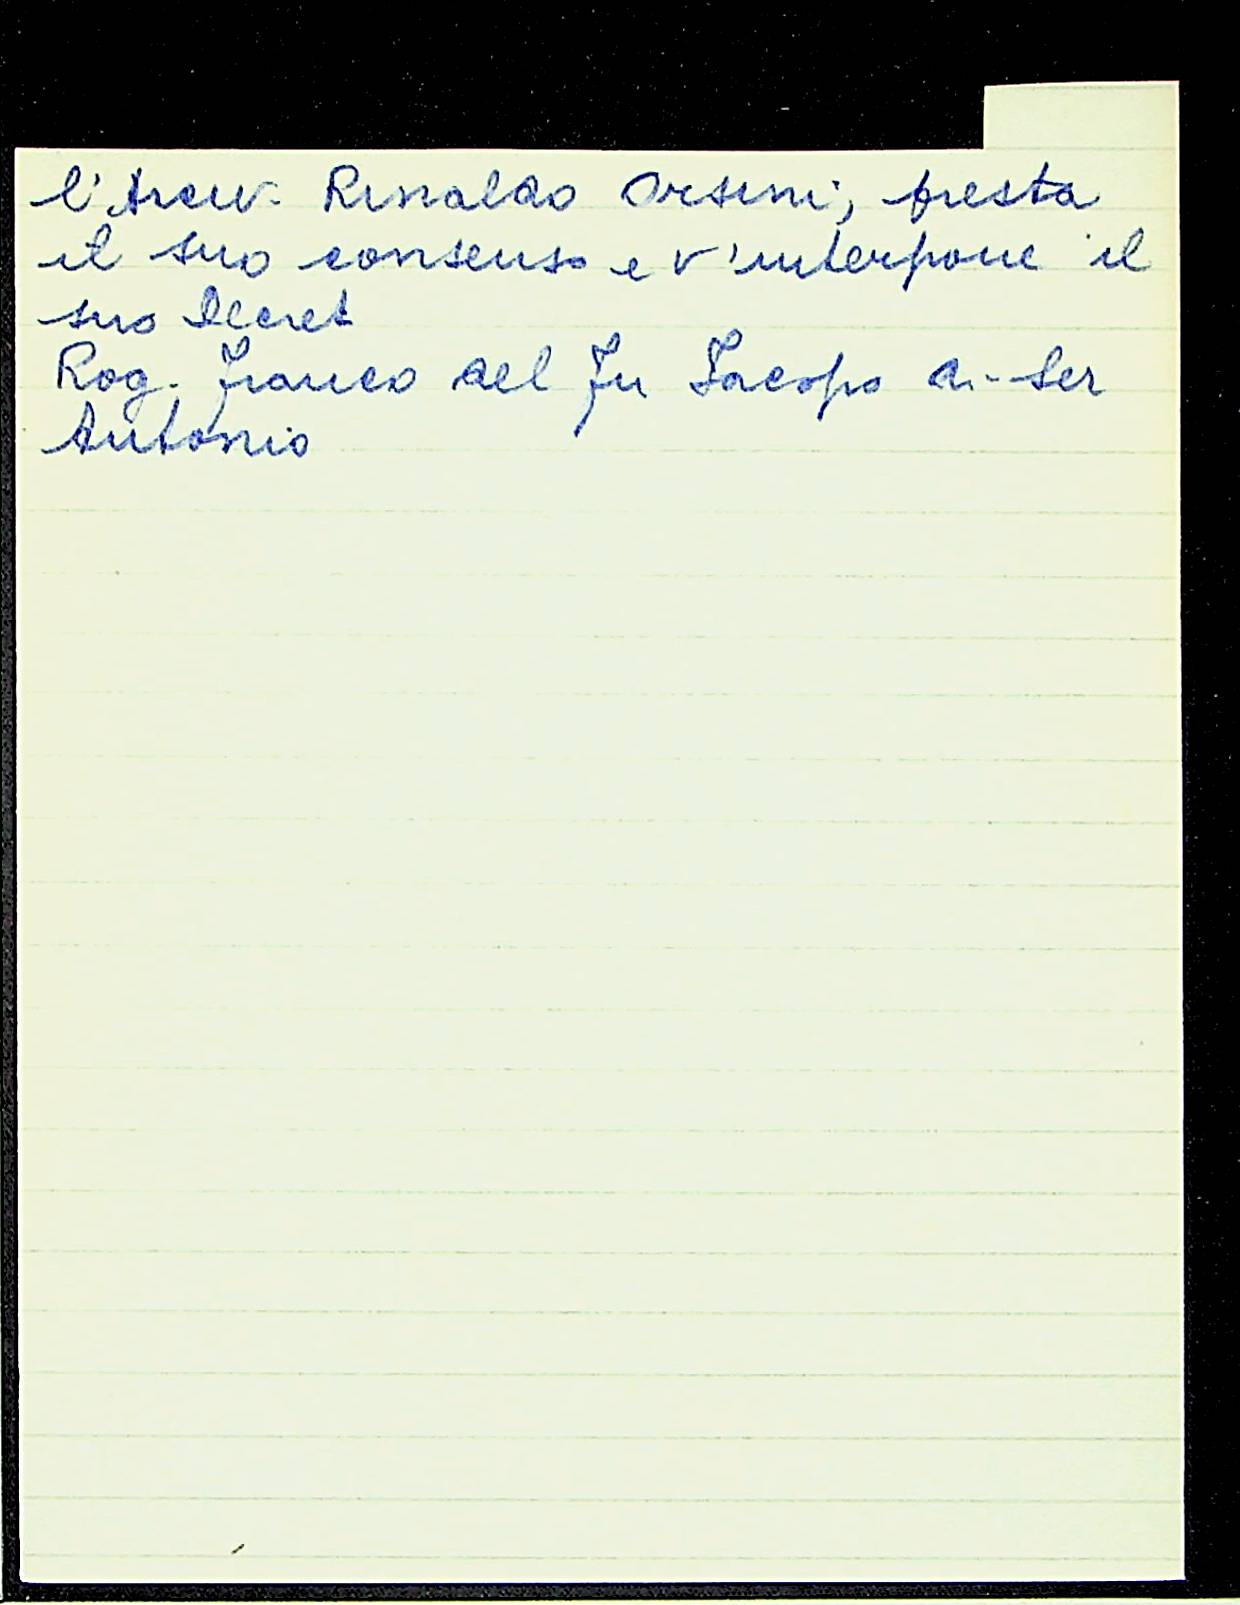 l'Arciv. Rinaldo Orsini, presta
il suo consenso e v'interpone il
suo Decret
Rog. Franco del fu Jacopo di Ser
Antonio